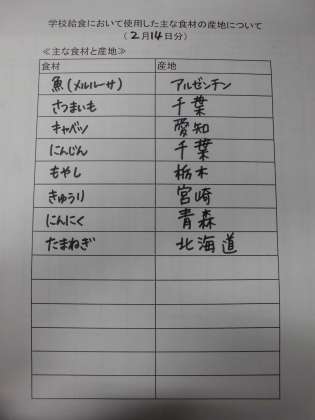 学校給食において使用した主な食材の産地について
(2月14日分)
≪主な食材と産地≫
食材 産地
魚(メルルーサ) アルゼンチン
さつまいも 千葉
キャベツ 愛知
にんじん 千葉
もやし 栃木
きゅうり 宮崎
にんにく 青森
たまねぎ 北海道